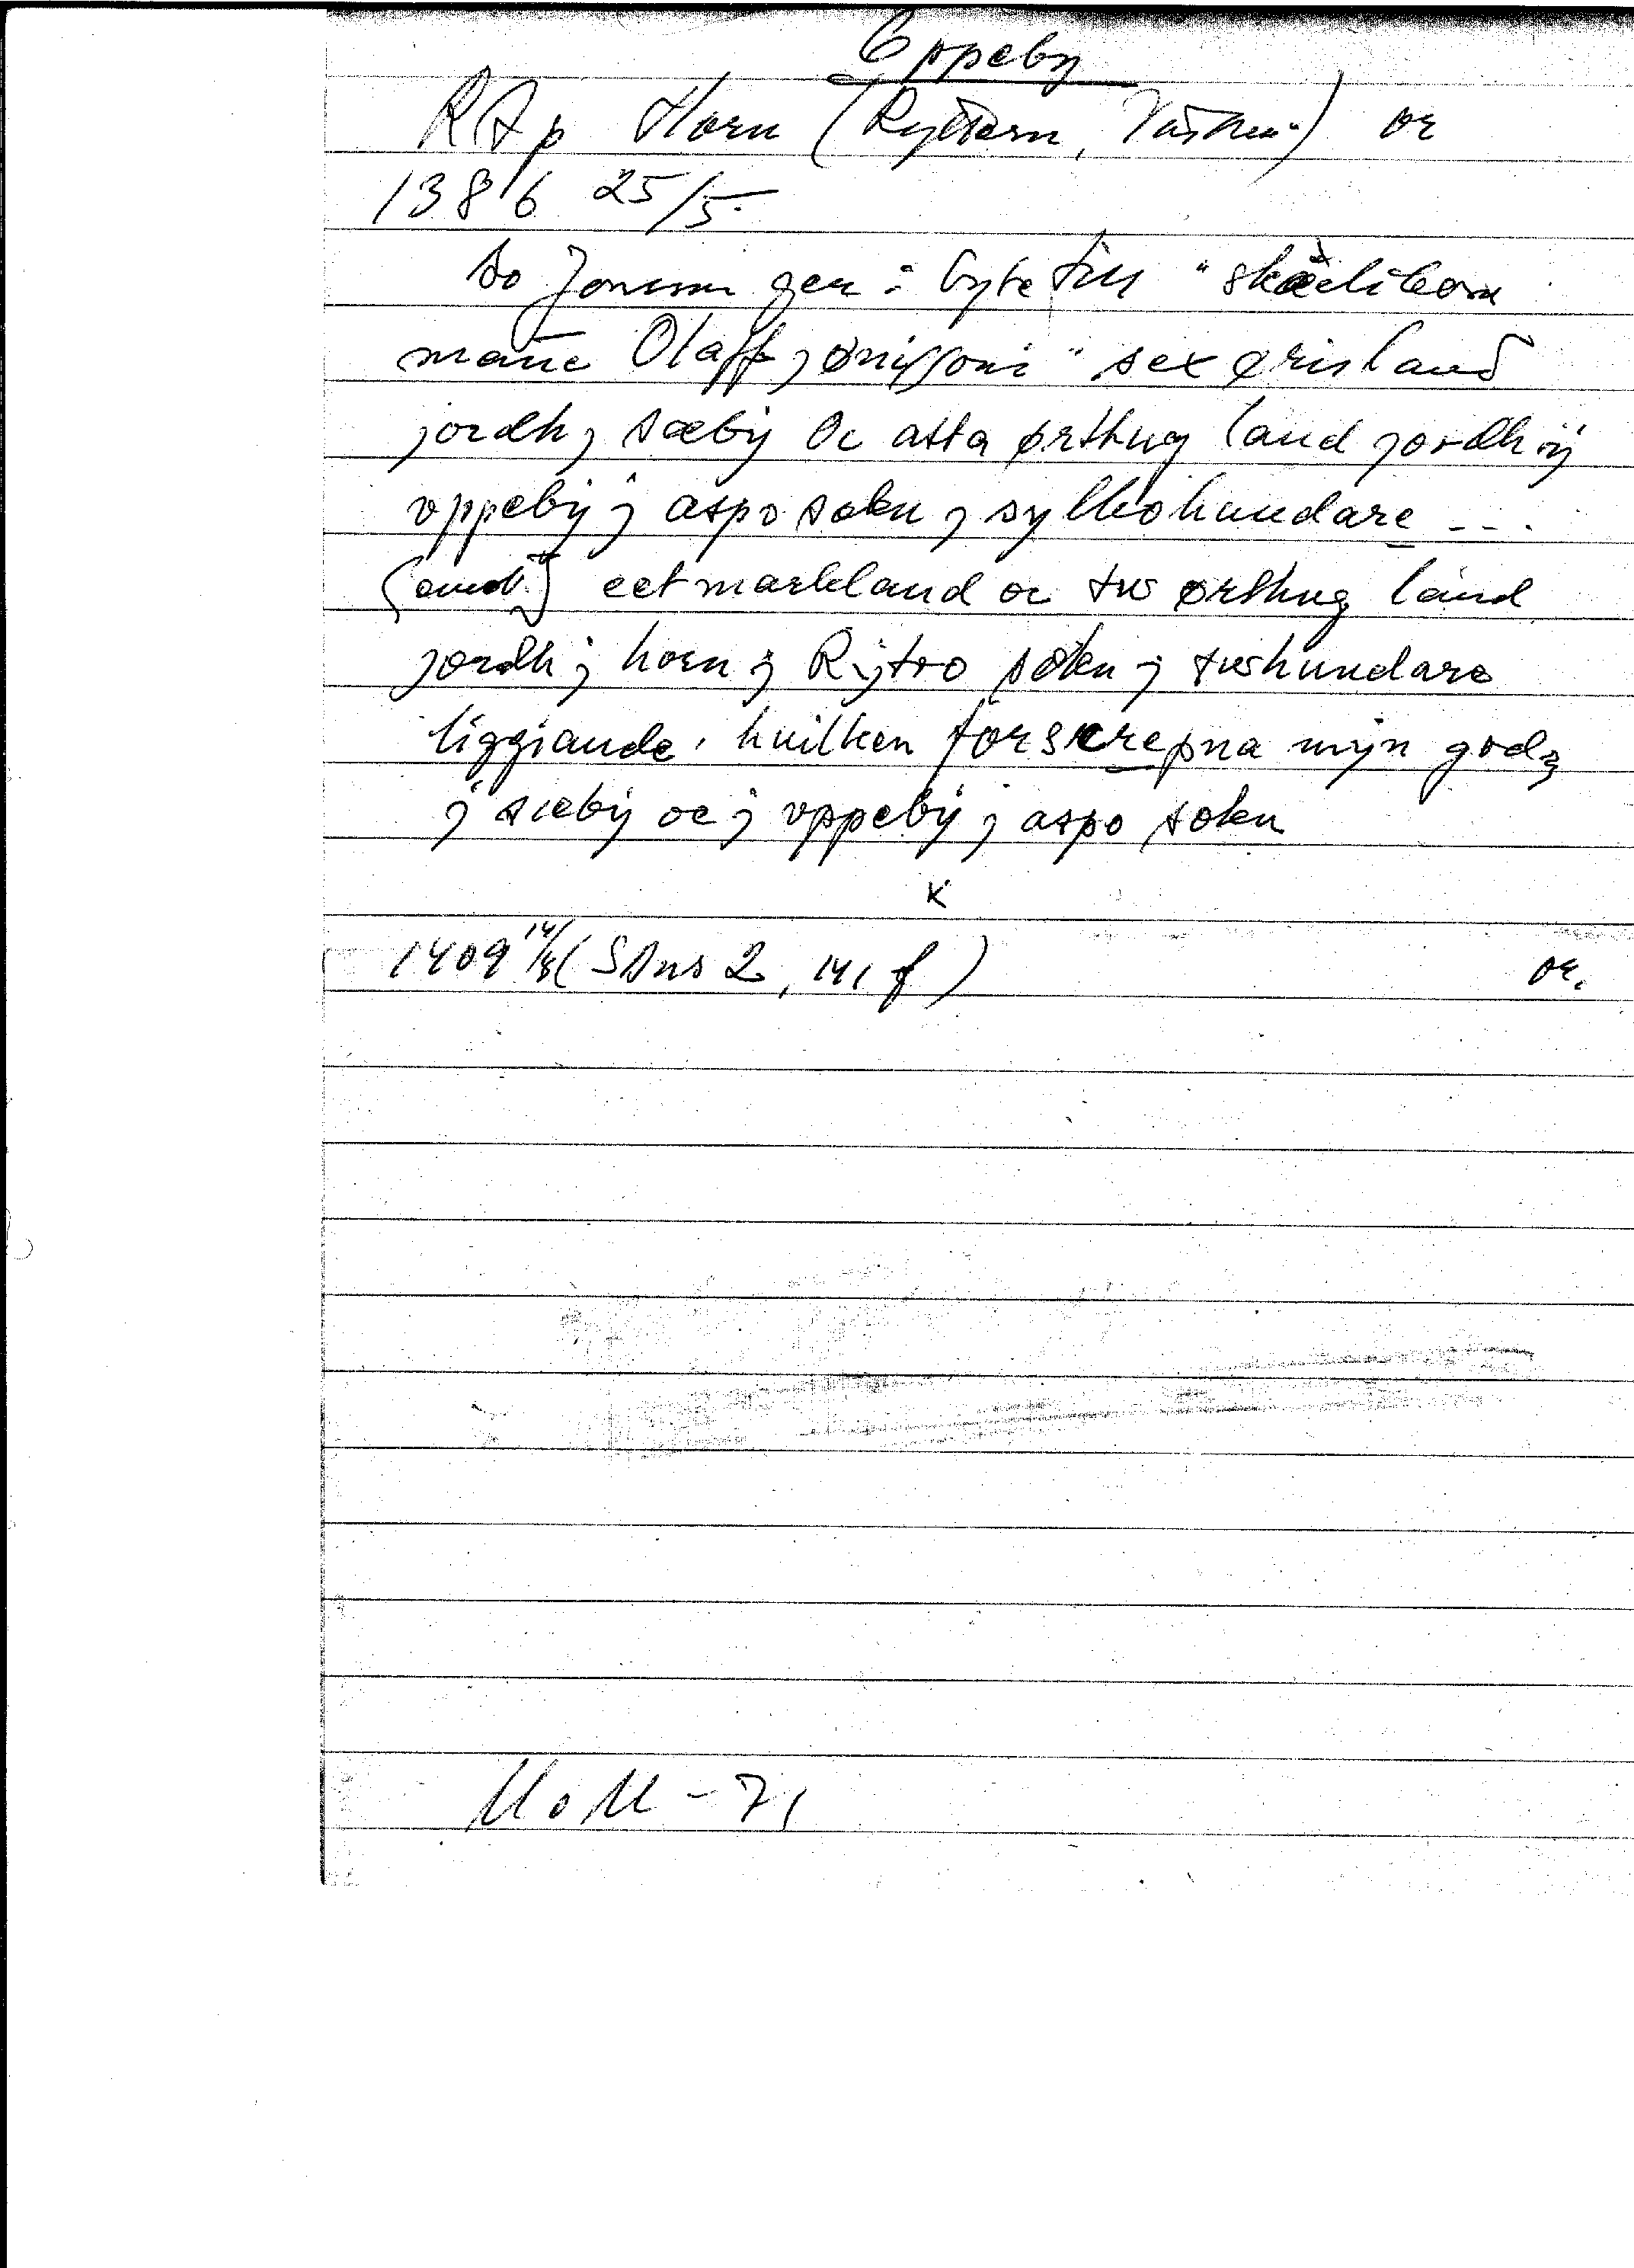 Uppeby
RAp Horn (Ryttern, Tuhu.) or
1386 25/5.
Bo Jonsson ger i byte till "skælikom
manne Olaff jønissoni" sex ørisland
jordh j sæby Oc atta ørthug land jordh ij
vppeby j aspo sokn j sylbohundare ---
(emot) eet markland oc tw ørthug land
jordh j horn j Rytro sokn j twhundare
liggiande, huilken forscrepna mijn godz
j sæby oc j vppeby j aspo sokn
K
1409 14/8 (SDns 2, 141 f) or.
MoM - 71